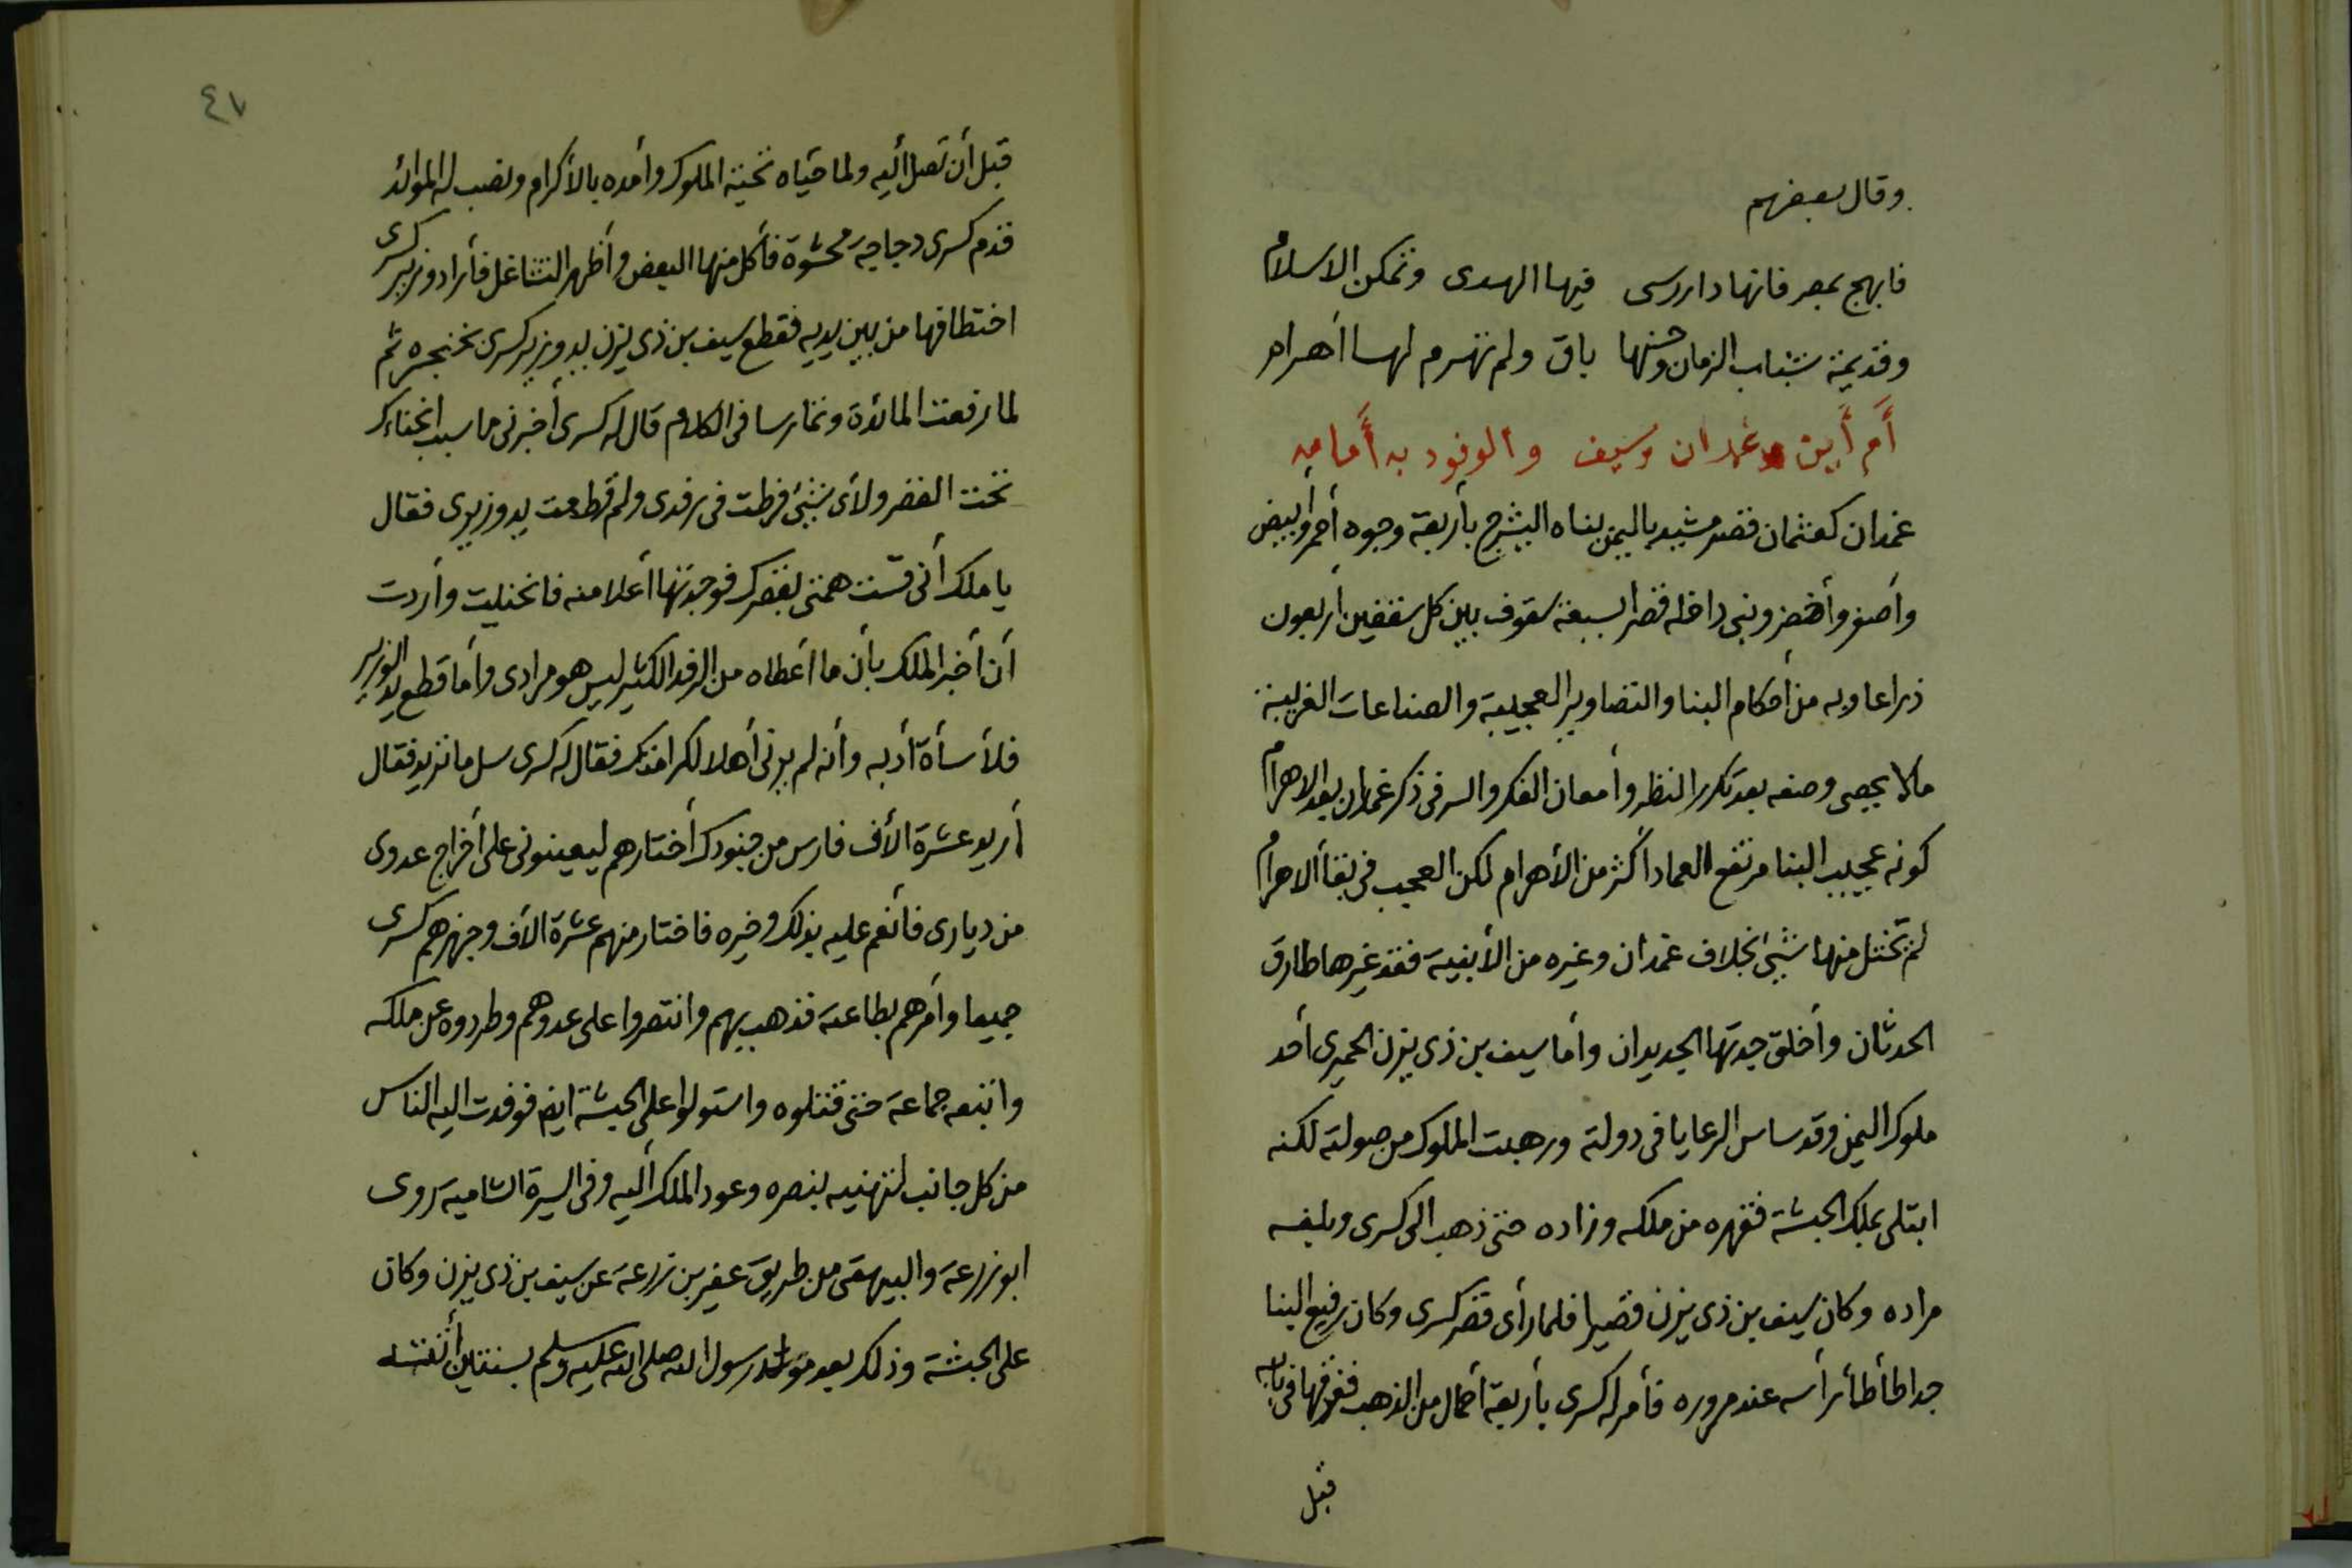 وقال بعضهم
فابهج بمصر فانها دار رسى فيها الهدى وتمكن الاسلام
وقديمة شاب الزمان وحسنها باق ولم تهرم لها أهرام
أم أين غمدان وسيف والوفود به أمامه
غمدان كعثمان قصر مشيد باليمن بناه اليشرح بأربعة وجوه أحمر وأبيض
وأصفر وأخضر وبنى داخله قصرا بسبعة سقوف بين كل سقفين أربعون
ذراعا وبه من أحكام البنا والتصاوير العجيبة والصناعات الغريبة
مالا يحصى وصفه بعد تكرر النظر وأمعان الفكر والسر فى ذكر غمدان بعد الاهرام
كونه عجيب البنا مرتفع العماد أكثر من الأهرام لكن العجب فى بقأ الاهرام
لم تختل منها شيئ بخلاف غمدان وغيره من الأبنية فقد غيرها طارق
الحدثان وأخلق جدتها الجديدان وأما سيف بن ذى يزن الحميرى أحد
ملوك اليمن وقد ساس الرعايا فى دولة ورهبت الملوك من صولته لكنه
ابتلى بملك الحبشة فقهره من ملكه وزاده حتى ذهب الى كسرى وبلغه
مراده وكان سيف بن ذى يزن قصيرا فلما رأى قصر كسرى وكان رفيع البنا
جدا طأطأ رأسه عند مروره فأمر له كسرى بأربعة أحمال من الذهب ففرقها فى بابه
قبل
٤٧
قبل أن تصل أليه ولما حياه تحية الملوك وأمده بالأكرام ونصب له الموائد
قدم كسرى دجاجة محشوة فأكل منها البعض وأظهر التشاغل فأراد وزير كسرى
اختطافها من بين يديه فقطع سيف بن ذى يزن يد وزير كسرى بخنجره ثم
لما رفعت المائدة وتمارسا فى الكلام قال له كسرى أخبرنى ما سبب انحناءك
تحت القصر ولأى شيئ فرطت فى رفدى ولم قطعت يد وزيرى فقال
يا ملك أنى قست همتى بقصرك فوجدتها أعلا منه فانحنيت وأردت
أن أخبر الملك بأن ما أعطاه من الرفد الكثير ليس هو مرادى وأما قطع يد الوزير
فلأسأة أدبه وأنه لم يرنى أهلا لكرامتك فقال له كسرى سل ما تريد فقال
أريد عشرة الأف فارس من جنودك أختارهم ليعينونى على أخراج عدوى
من ديارى فأنعم عليه بذلك وخيره فاختار منهم عشرة الأف وجهزهم كسرى
جميعا وأمرهم بطاعته فذهب بهم وانتصروا على عدوهم وطردوه عن ملكه
واتبعه جماعة حتى قتلوه واستولوا على الحبشة ايض فوفدت اليه الناس
من كل جانب لتهنيه بنصره وعود الملك أليه وفى السيرة الشامية روى
ابو زرعة والبيهقى من طريق عفير بن زرعة عن سيف بن ذى يزن وكان
على الحبشة وذلك بعد مولد رسول الله صلى الله عليه وسلم بسنتين